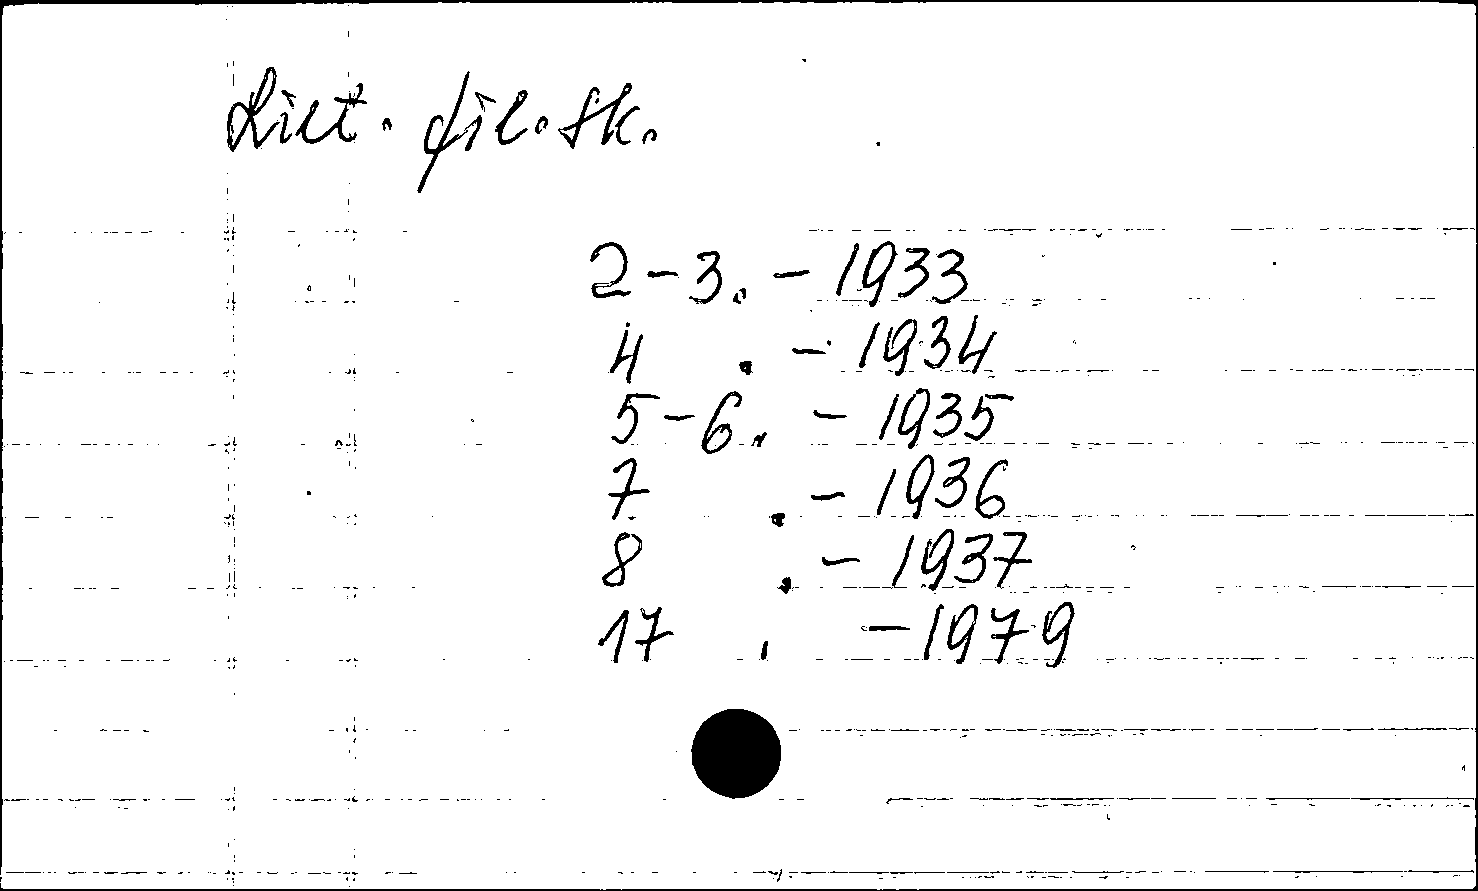 Liet. fil. sk.
2-3. - 1933
4 . - 1934
5-6. - 1935
7 . - 1936
8 . - 1937
17 . - 1979